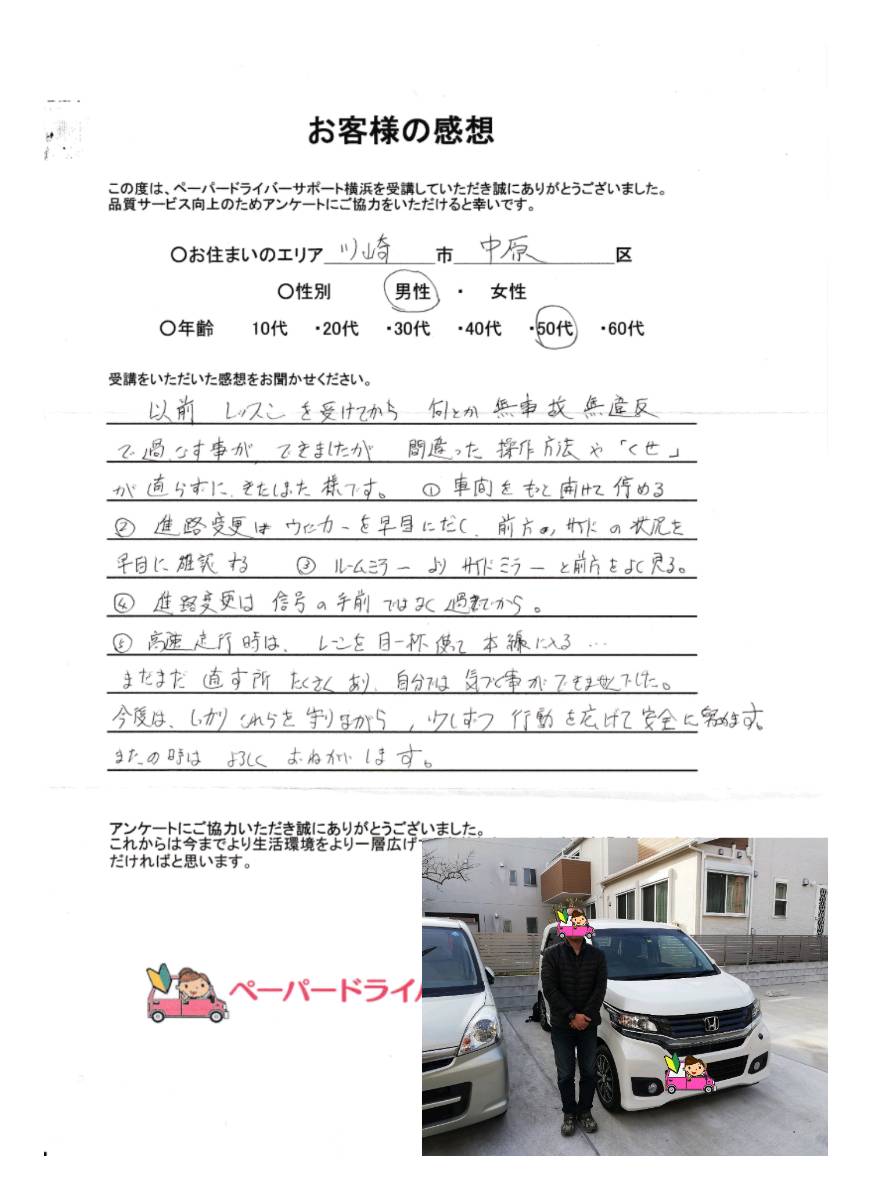 お客様の感想
この度は、ペーパードライバーサポート横浜を受講していただき誠にありがとうございました。
品質サービス向上のためアンケートにご協力をいただけると幸いです。
〇お住まいのエリア 川崎 市 中原 区
〇性別 男性 ・ 女性
〇年齢 10代 ・20代 ・30代 ・40代 ・50代 ・60代
受講をいただいた感想をお聞かせください。
以前 レッスンを受けてから 何とか 無事故 無違反
で過ごす事が、できましたが 間違った 操作方法や「くせ」
が直らずに、きたしまった様です。 ① 車間をもっと開けて停める
② 進路変更はウィンカーを早目にだし、前方の、サイドの状況を
早目に確認する ③ ルームミラーよりサイドミラーと前方をよく見る。
④ 進路変更は信号の手前ではなく過ぎてから。
⑤ 高速走行時は、レーンを目一杯使って本線に入る…
まだまだ直す所たくさんあり、自分では気づく事ができませんでした。
今度は、しっかりこれらを守りながら、少しずつ行動を広げて安全に努めます。
またの時はよろしくおねがいします。
アンケートにご協力いただき誠にありがとうございました。
これからは今までより生活環境をより一層広げ
だければと思います。
ペーパードライ